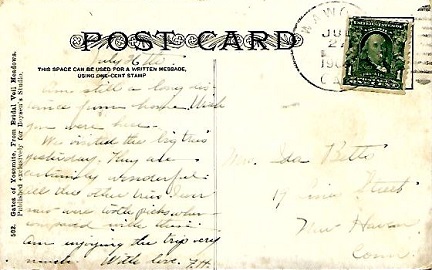 POST CARD
THIS SPACE CAN BE USED FOR A WRITTEN MESSAGE,
USING ONE-CENT STAMP
July 26th
still a long dis-
tance from home. Wish
you were here.
We visited the big trees
yesterday. They are
certainly wonderful
all the other trees I ever
saw were toothpicks when
compared with them
am enjoying the trip very
much. With love.
Mrs. Ida Betts
19 Street
New Haven
Conn.
WAWO
JUL
27
CAL
1
562. Gates of Yosemite, From Bridal Veil Meadows.
Published exclusively for Boysen's Studio.